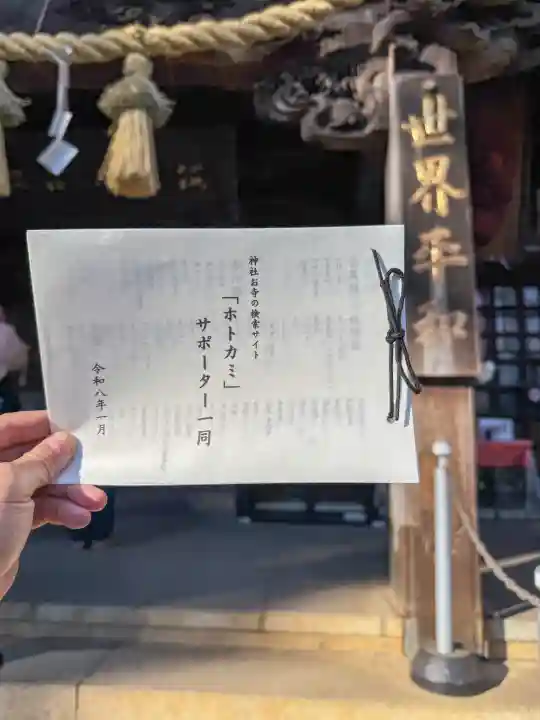 世界平和
神社お寺の検索サイト
「ホトカミ」
サポーター一同
令和八年一月